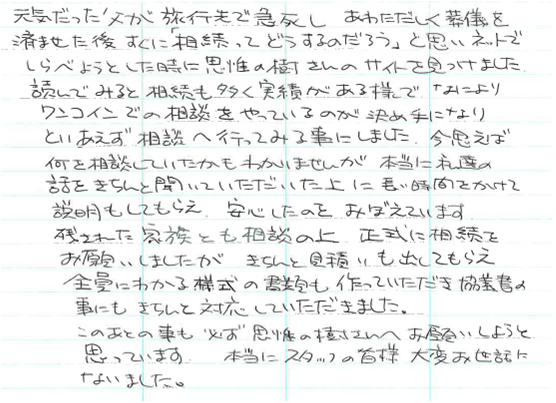 元気だった父が旅行先で急死し あわただしく葬儀を
済ませた後 すぐに「相続ってどうするのだろう」と思い ネットで
しらべようとした時に思惟の樹さんのサイトを見つけました
読んでみると相続も多く実績がある様で なにより
ワンコインでの相談をやっているのが決め手になり
とりあえず相談へ行ってみる事にしました。今思えば
何を相談していたかもわかいませんが 本当に私達の
話をきちんと聞いていただいた上に長い時間をかけて
説明もしてもらえ 安心したのを おぼえています
残された家族とも相談の上 正式に相続を
お願いしましたが きちんと見積いも出してもらえ
全員にわかる様式の書類も作っていただき 協業者の
事にもきちんと対応していただきました。
このあとの事も必ず思惟の樹さんへお願いしようと
思っています 本当にスタッフの皆様 大変お世話に
ないました。